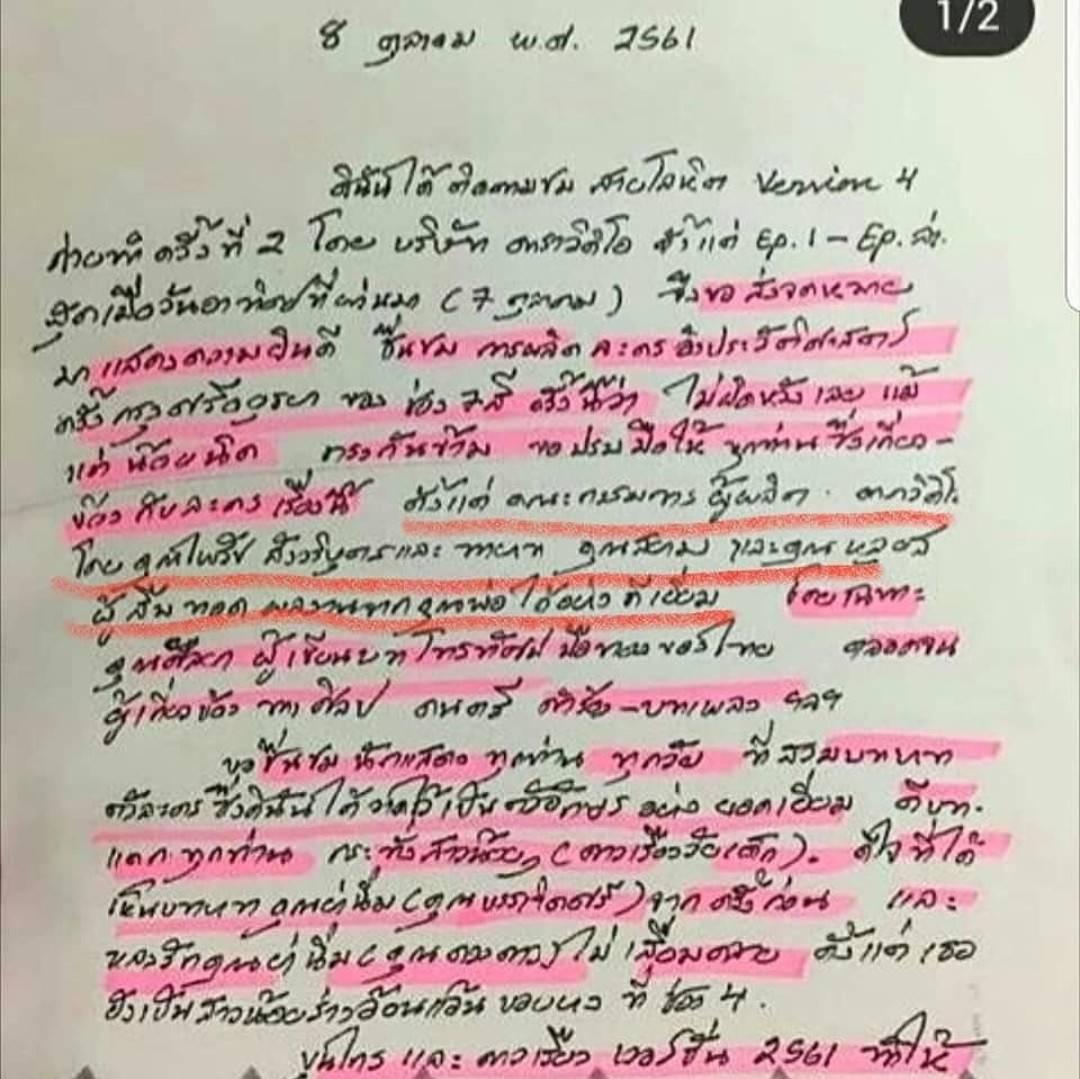 1/2
8 ตุลาคม พ.ศ. 2561
ดิฉันได้ติดตามชม สายโลหิต Version 4
ถ่ายทำครั้งที่ 2 โดย บริษัท ดาราวิดีโอ ตั้งแต่ Ep.1 - Ep. ล่า
สุดเมื่อวันอาทิตย์ที่ผ่านมา (7 ตุลาคม) จึงขอส่งจดหมาย
มาแสดงความยินดี ชื่นชม การผลิตละครอิงประวัติศาสตร์
ครั้งกรุงศรีอยุธยา ของ ช่อง 7 สี ครั้งนี้ว่า ไม่ผิดหวังเลย แม้
แต่น้อยนิด ตรงกันข้าม ขอปรบมือให้ ทุกท่านซึ่งเกี่ยว-
ข้องกับละครเรื่องนี้ ตั้งแต่ คณะกรรมการ ผู้ผลิต. ดาราวิดีโอ
โดย คุณไพรัช สังวริบุตร และ ทายาท คุณสยาม และคุณ
ผู้สืบทอด ผลงานจากคุณพ่อได้อย่างดีเยี่ยม โดยเฉพาะ
คุณศัลยา ผู้เขียนบทโทรทัศน์มือทองของไทย ตลอดจน
ผู้เกี่ยวข้อง ทางศิลป ดนตรี คำร้อง-บทเพลง ฯลฯ
ขอชื่นชม นักแสดง ทุกท่าน ทุกวัย ที่สวมบทบาท
ตัวละครซึ่งดิฉันได้วาดไว้เป็นตัวอักษร อย่าง ยอดเยี่ยม ตีบท
แตกทุกท่าน กระทั่งสาวน้อย (ดาวเรืองวัยเด็ก). ดีใจที่ได้
เห็นบทบาท คุณย่านิ่ม (คุณบรรเจิดศรี) จากครั้งก่อน และ
หลงรักคุณย่านิ่ม (คุณดวงดาว) ไม่เสื่อมคลาย ตั้งแต่เธอ
ยังเป็นสาวน้อยร่างอ้อนแอ้น บอบบาง ที่ ช่อง 4.
ขุนไกร และ ดาวเรือง เวอร์ชั่น 2561 ทำให้